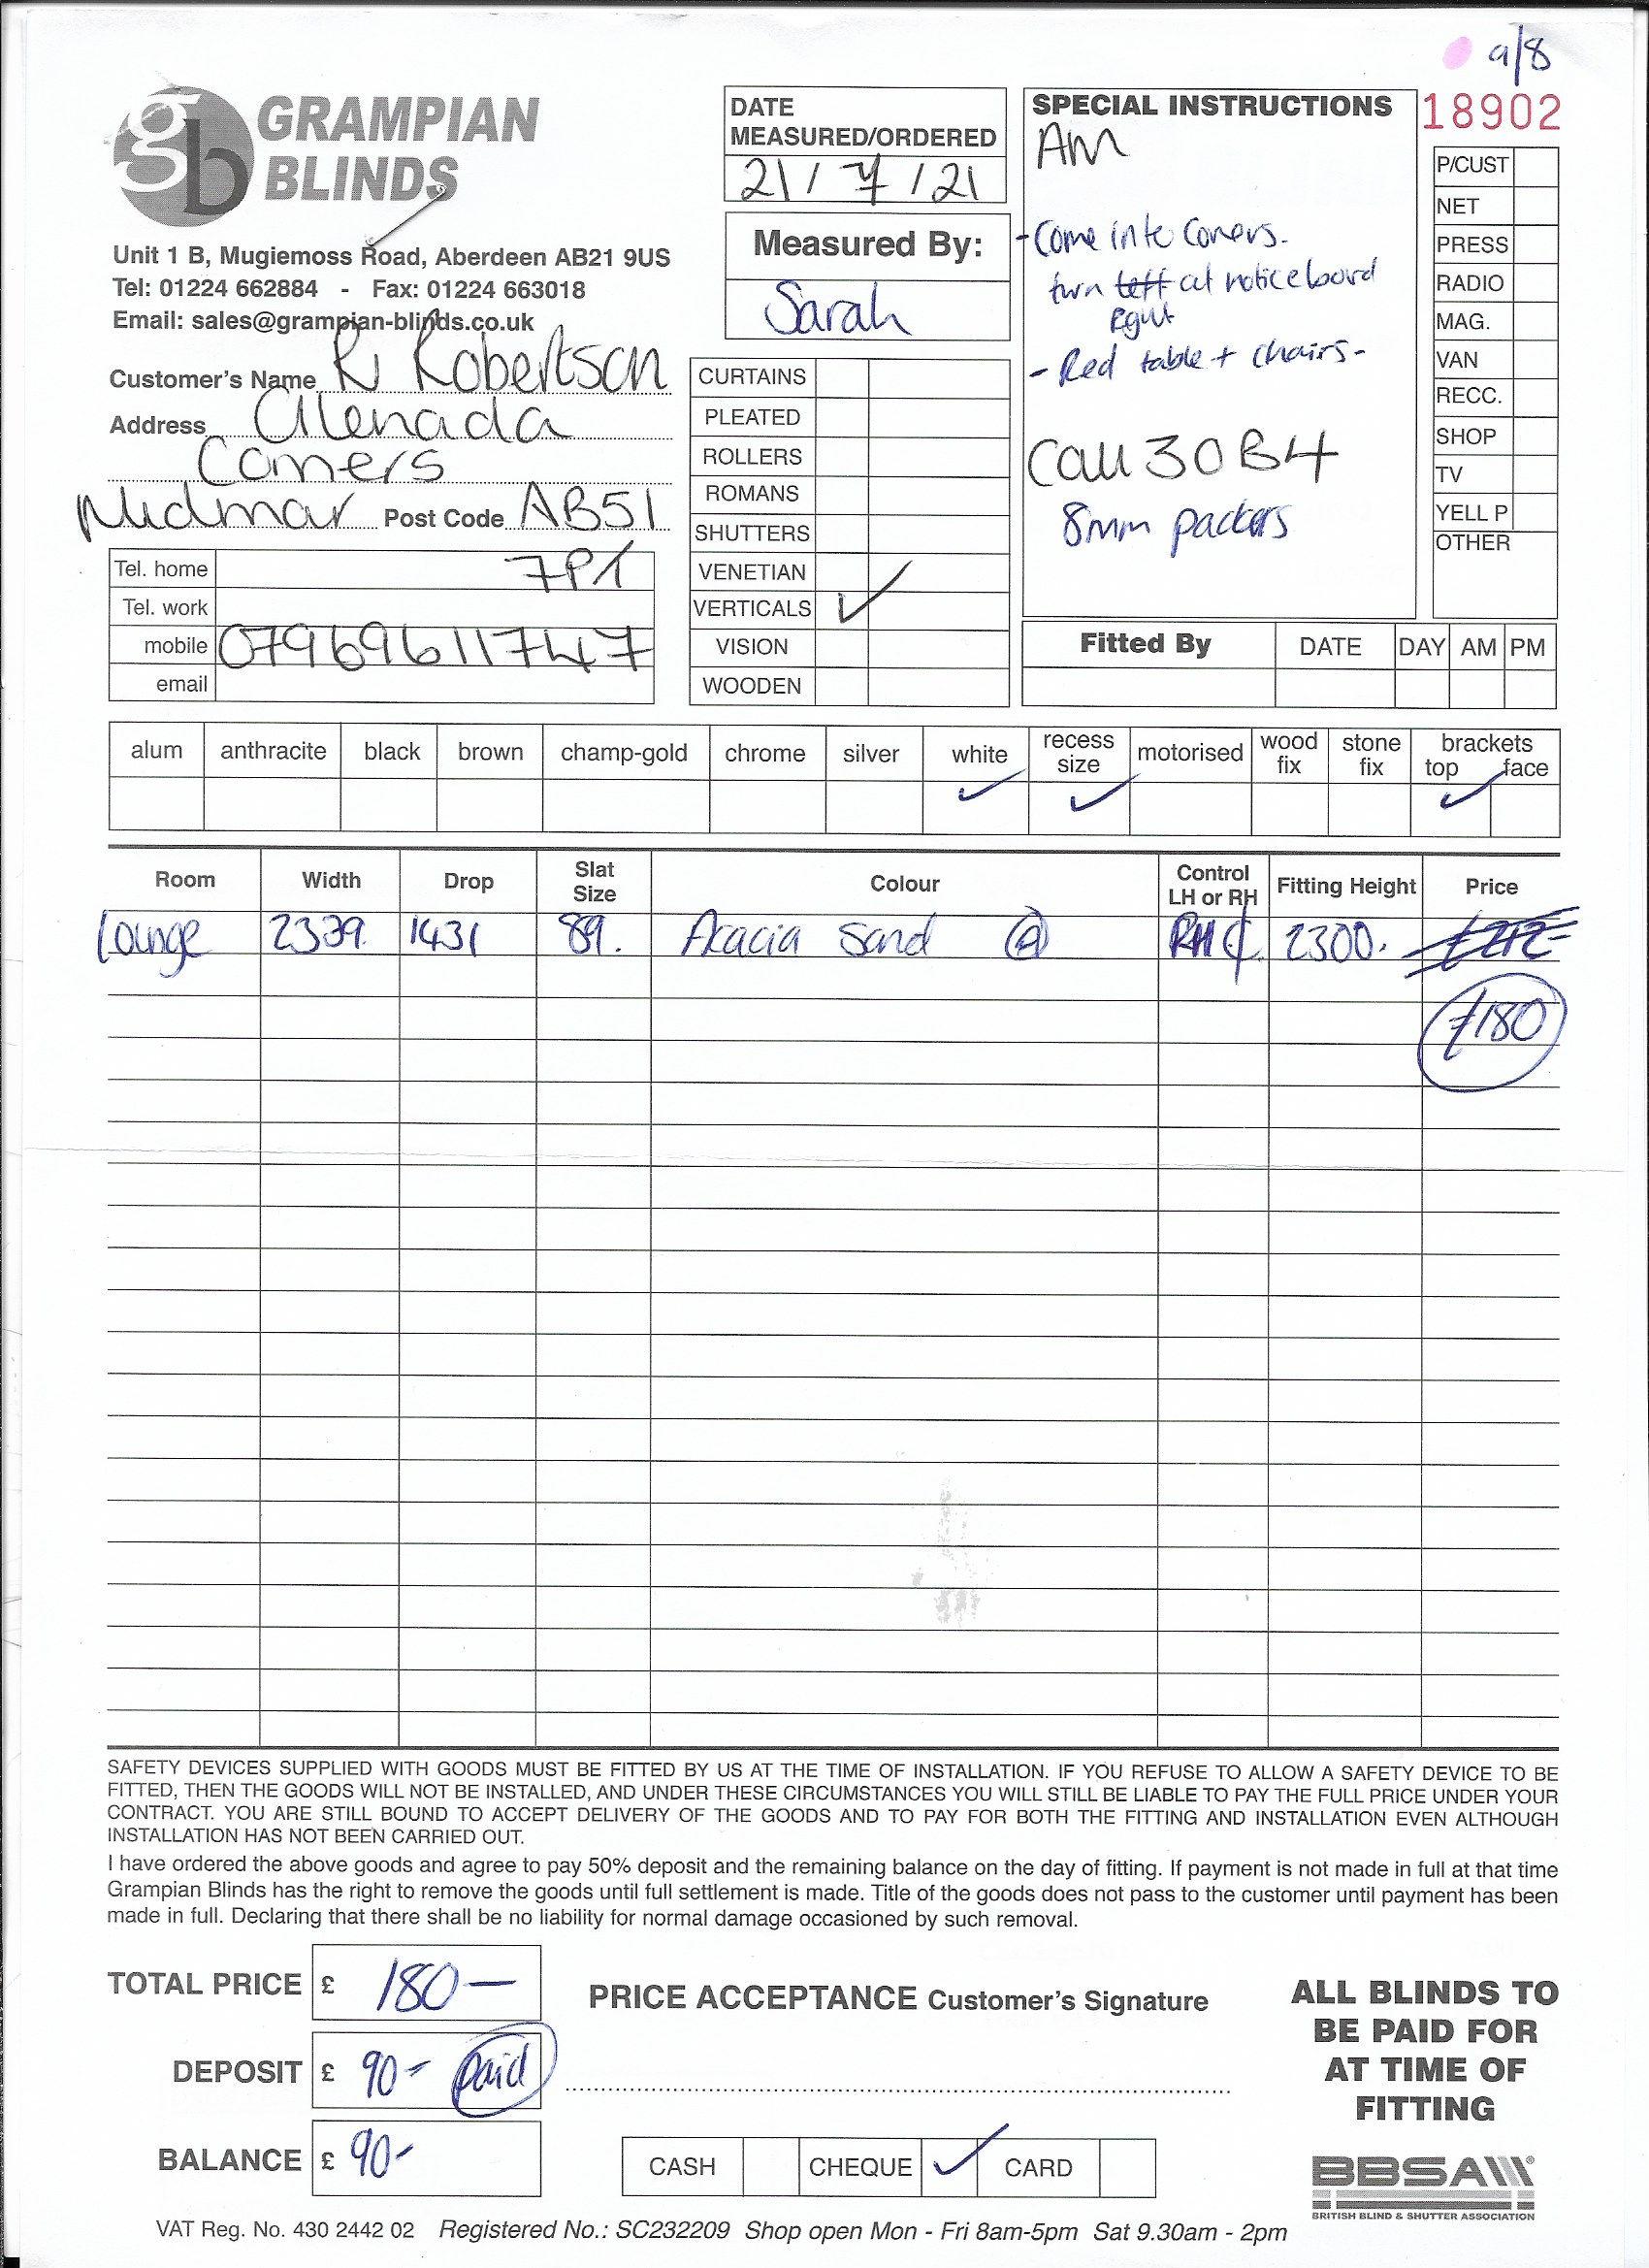 9/8
GRAMPIAN
BLINDS
Unit 1 B, Mugiemoss Road, Aberdeen AB21 9US
Tel: 01224 662884 - Fax: 01224 663018
Email: sales@grampian-blinds.co.uk
Customer's Name R Robertson
Address Glenada
Comers
Midmar Post Code AB51
7PT
Tel. home
Tel. work
mobile 07969611747
email
DATE
MEASURED/ORDERED
21/7/21
Measured By:
Sarah
CURTAINS
PLEATED
ROLLERS
ROMANS
SHUTTERS
VENETIAN
VERTICALS ✓
VISION
WOODEN
SPECIAL INSTRUCTIONS
AM
- Come into Comers.
turn left at noticeboard
Right
- Red table + chairs -
Call 30 B4
8mm packers
18902
P/CUST
NET
PRESS
RADIO
MAG.
VAN
RECC.
SHOP
TV
YELL P
OTHER
Fitted By DATE DAY AM PM
alum anthracite black brown champ-gold chrome silver white recess size motorised wood fix stone fix brackets top face
✓ ✓ ✓
Room Width Drop Slat Size Colour Control LH or RH Fitting Height Price
Lounge 1431 89. Acacia Sand RH 2300. £212-
£180
SAFETY DEVICES SUPPLIED WITH GOODS MUST BE FITTED BY US AT THE TIME OF INSTALLATION. IF YOU REFUSE TO ALLOW A SAFETY DEVICE TO BE
FITTED, THEN THE GOODS WILL NOT BE INSTALLED, AND UNDER THESE CIRCUMSTANCES YOU WILL STILL BE LIABLE TO PAY THE FULL PRICE UNDER YOUR
CONTRACT. YOU ARE STILL BOUND TO ACCEPT DELIVERY OF THE GOODS AND TO PAY FOR BOTH THE FITTING AND INSTALLATION EVEN ALTHOUGH
INSTALLATION HAS NOT BEEN CARRIED OUT.
I have ordered the above goods and agree to pay 50% deposit and the remaining balance on the day of fitting. If payment is not made in full at that time
Grampian Blinds has the right to remove the goods until full settlement is made. Title of the goods does not pass to the customer until payment has been
made in full. Declaring that there shall be no liability for normal damage occasioned by such removal.
TOTAL PRICE £ 180-
DEPOSIT £ 90- paid
BALANCE £ 90-
PRICE ACCEPTANCE Customer's Signature
CASH CHEQUE ✓ CARD
ALL BLINDS TO
BE PAID FOR
AT TIME OF
FITTING
BBSA
BRITISH BLIND & SHUTTER ASSOCIATION
VAT Reg. No. 430 2442 02 Registered No.: SC232209 Shop open Mon - Fri 8am-5pm Sat 9.30am - 2pm